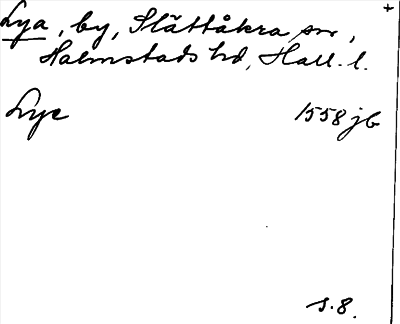 Lya, by, Slättåkra sn,
Halmstads hd, Hall. l.
Lye 1558 jb
s. 8.